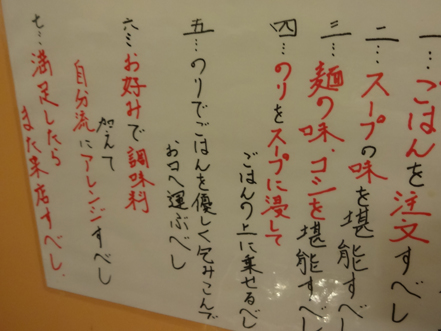 一…ごはんを注文すべし
二…スープの味を堪能すべし
三…麺の味、コシを堪能すべし
四…のりをスープに浸して
ごはんの上に乗せるべし
五…のりでごはんを優しく包みこんで
お口へ運ぶべし
六…お好みで調味料
加えて
自分流にアレンジすべし
七…満足したら
また来店すべし。